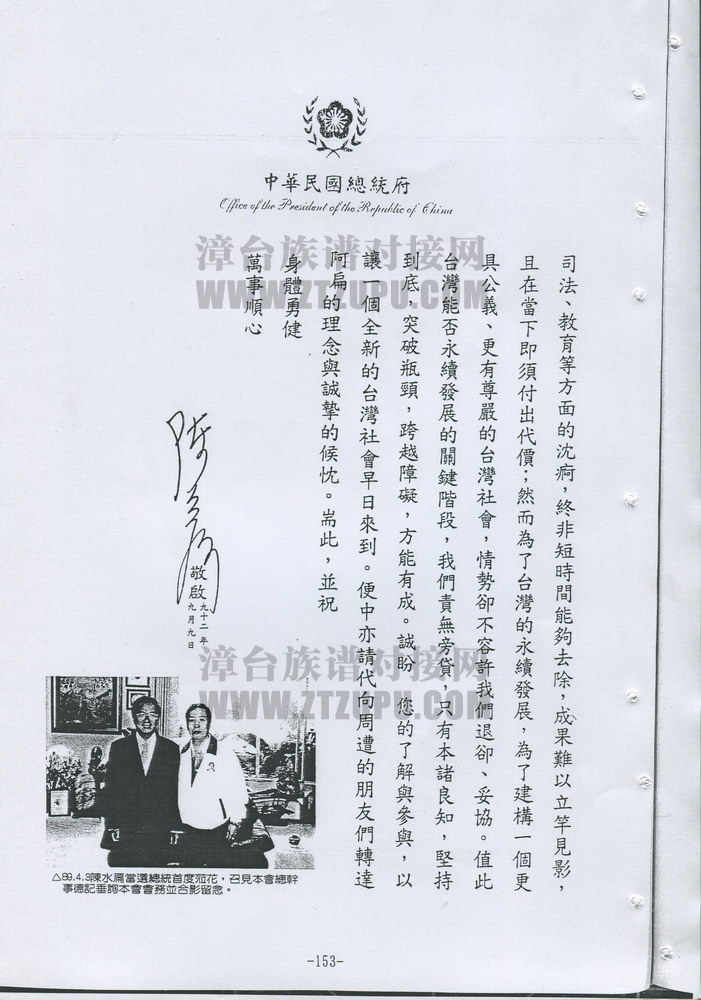 中華民國總統府
Office of the President of the Republic of China
司法、教育等方面的沈痾，終非短時間能夠去除，成果難以立竿見影，
且在當下即須付出代價；然而為了台灣的永續發展，為了建構一個更
具公義、更有尊嚴的台灣社會，情勢卻不容許我們退卻、妥協。值此
台灣能否永續發展的關鍵階段，我們責無旁貸，只有本諸良知，堅持
到底，突破瓶頸，跨越障礙，方能有成。誠盼　您的了解與參與，以
讓一個全新的台灣社會早日來到。便中亦請代向周遭的朋友們轉達
阿扁的理念與誠摯的候忱。耑此，並祝
身體勇健
萬事順心
敬啟
九十二年
九月九日
漳台族谱对接网
WWW.ZTZUPU.COM
漳台族谱对接网
WWW.ZTZUPU.COM
△89.4.3陳水扁當選總統首度蒞花，召見本會總幹
事德記垂詢本會會務並合影留念。
-153-